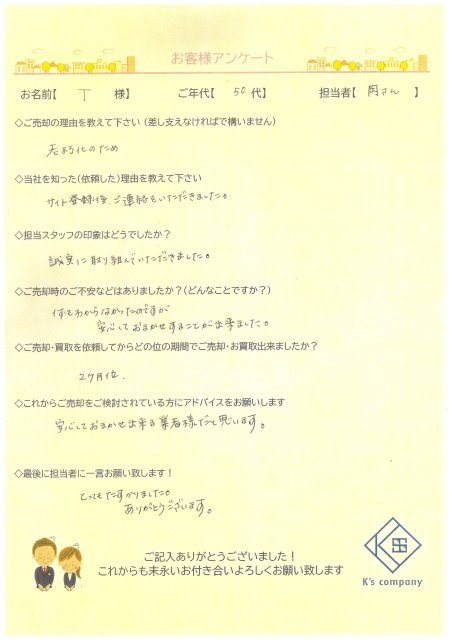 お客様アンケート
お名前【 T 様】 ご年代【 50 代】 担当者【 岡さん 】
◇ご売却の理由を教えて下さい（差し支えなければで構いません）
老朽化のため
◇当社を知った（依頼した）理由を教えて下さい
サイト登録後、ご連絡をいただきました。
◇担当スタッフの印象はどうでしたか？
誠実に取り組んでいただきました。
◇ご売却時のご不安などはありましたか？（どんなことですか？）
何もわからなかったのですが
安心しておまかせすることが出来ました。
◇ご売却・買取を依頼してからどの位の期間でご売却・お買取出来ましたか？
2ヶ月位.
◇これからご売却をご検討されている方にアドバイスをお願いします
安心しておまかせ出来る業者様だと思います。
◇最後に担当者に一言お願い致します！
とってもたすかりました。
ありがとうございます。
ご記入ありがとうございました！
これからも末永いお付き合いよろしくお願い致します
K's company